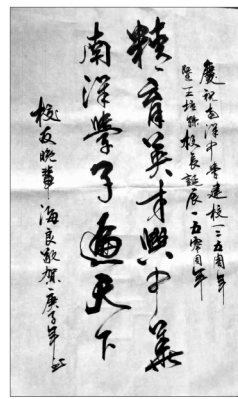 慶祝南洋中學建校一二五周年
暨王培孫校長誕辰一五零周年
精育英才興中華
南洋學子遍天下
校友晚輩 海良敬賀 庚子年